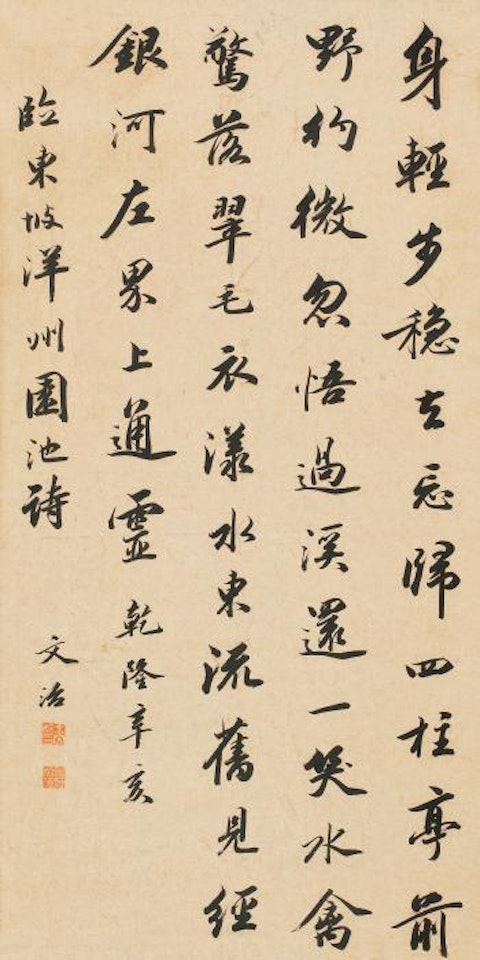 身輕步穩去忘歸四柱亭前
野彴微忽悟過溪還一笑水禽
驚落翠毛衣漾水東流舊見經
銀河左界上通靈乾隆辛亥
臨東坡洋州園池詩
文治